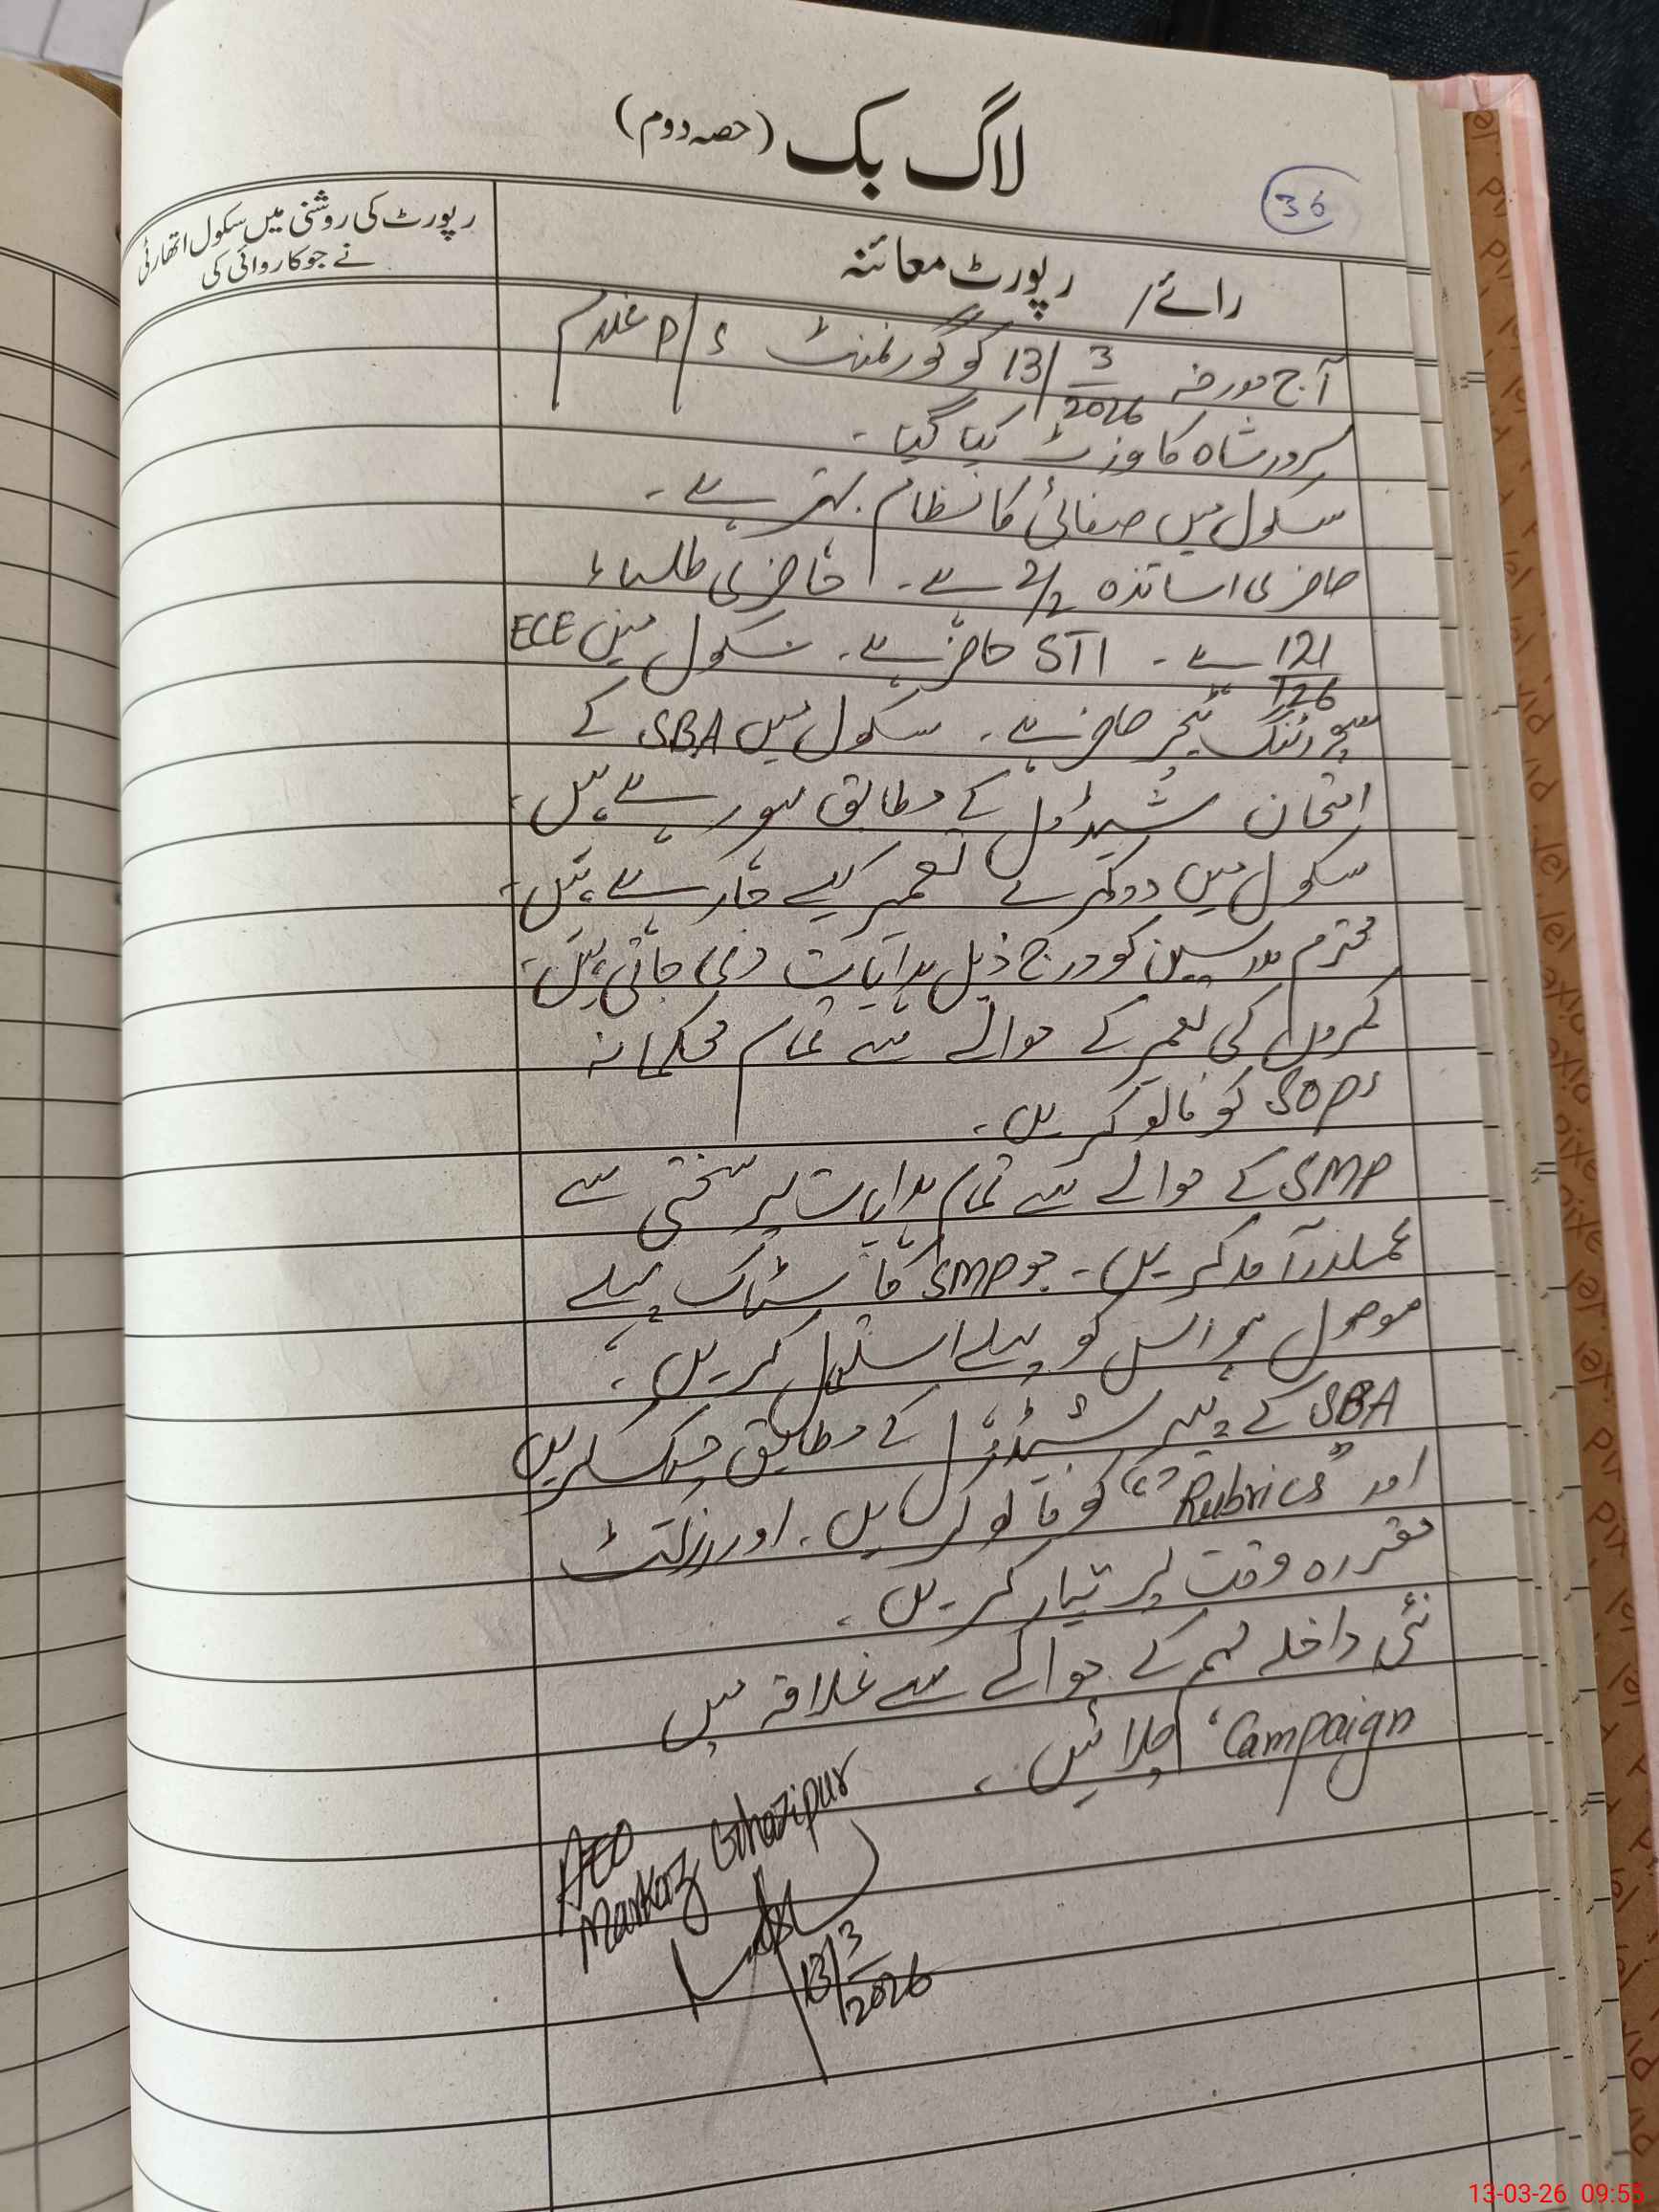 لاگ بک (حصہ دوم)
36
رائے / رپورٹ معائنہ
رپورٹ کی روشنی میں سکول اتھارٹی
نے جو کاروائی کی
آج مورخہ 13/3/2026 کو گورنمنٹ P/S غلام
سرور شاہ کا وزٹ کیا گیا ۔
سکول میں صفائی کا نظام بہتر ہے ۔
حاضری اساتذہ 2/2 ہے ۔ حاضری طلباء
121/126 ہے ۔ STI حاضر ہے ۔ سکول میں ECE
ٹیچر حاضر ہے ۔ سکول میں SBA کے
امتحان شیڈول کے مطابق ہو رہے ہیں ۔
سکول میں دو کمرے تعمیر کیے جا رہے ہیں ۔
محترم مدرسین کو درج ذیل ہدایات دی جاتی ہیں ۔
کمروں کی تعمیر کے حوالے سے تمام محکمانہ
SOPs کو فالو کریں ۔
SMP کے حوالے سے تمام ہدایات پر سختی سے
عملدرآمد کریں ۔ جو SMP کا سٹاک پہلے
موصول ہو اس کو پہلے استعمال کریں ۔
SBA کے پیپر شیڈول کے مطابق چیک کریں
اور "Rubrics" کو فالو کریں ۔ اور رزلٹ
مقررہ وقت پر تیار کریں ۔
نئی داخلہ مہم کے حوالے سے علاقہ میں
Campaign چلائیں ۔
AEO
Markaz Ghazipur
13/3/2026
13-03-26 09:55